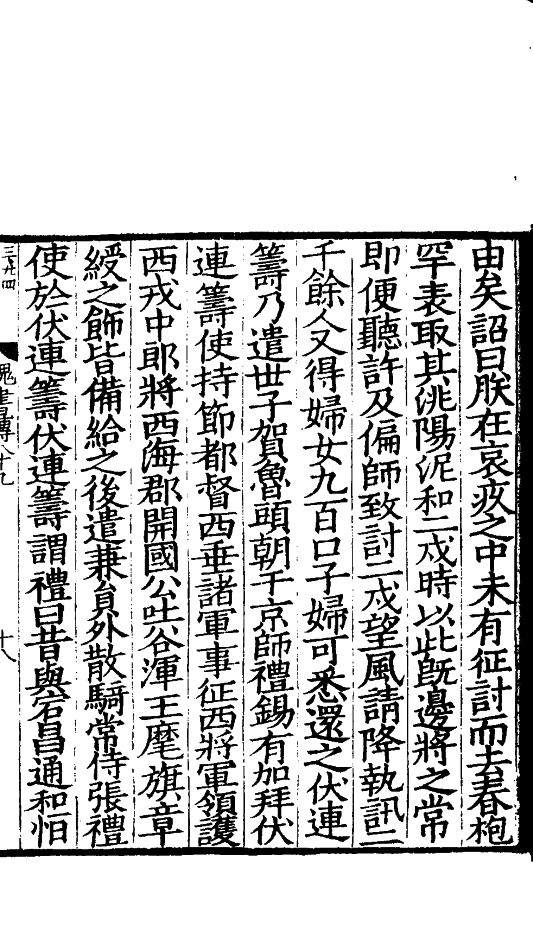 由矣詔曰朕在哀疚之中未有征討而去春枹
罕表取其洮陽泥和二戍時以此既邊將之常
即便聽許及偏師致討二戍望風請降執訊二
千餘人又得婦女九百口子婦可悉還之伏連
籌乃遣世子賀魯頭朝于京師禮錫有加拜伏
連籌使持節都督西垂諸軍事征西將軍領護
西戎中郎將西海郡開國公吐谷渾王麾旗章
綬之飾皆備給之後遣兼負外散騎常侍張禮
使於伏連籌伏連籌謂禮曰昔與宕昌通和怕
三廿四
傳八十九
十八